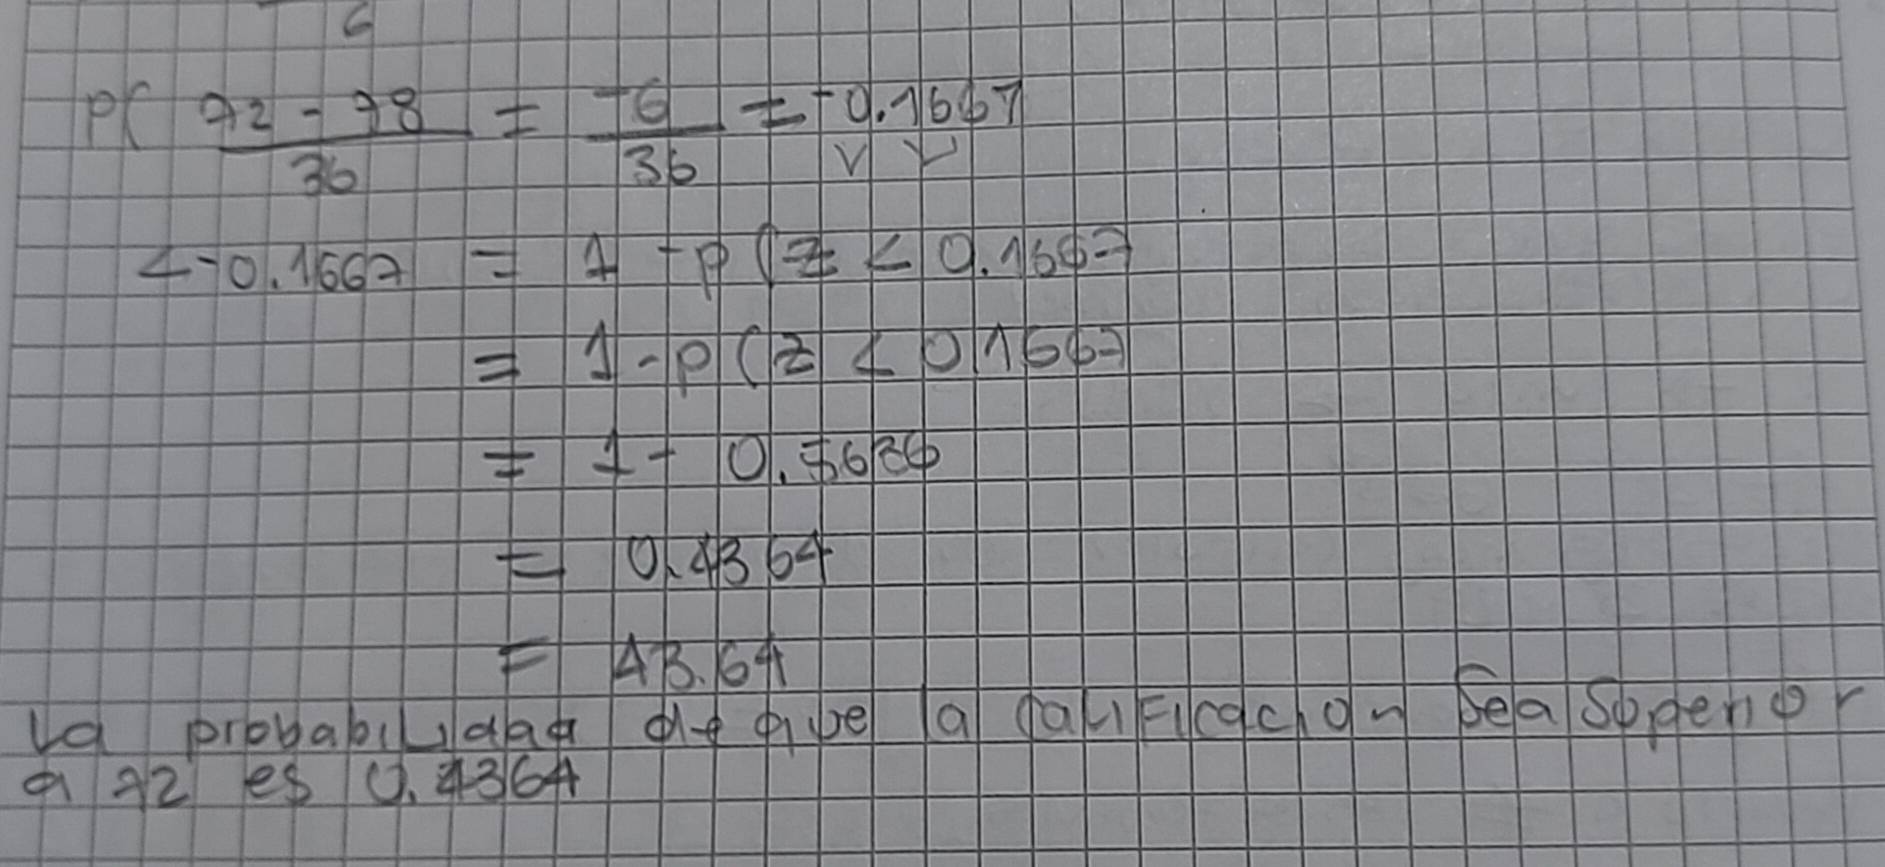 6
P( 72 - 78 = -6 = -0.1667
36 36 V V
< -0.1667 = 1 - p (z < 0.1667
= 1 - p (z < 0 1667
= 1 - 0.5636
= 0.4364
= 43.64
La probabilidad de que la calificacion sea soperior
a 72 es 0.4364